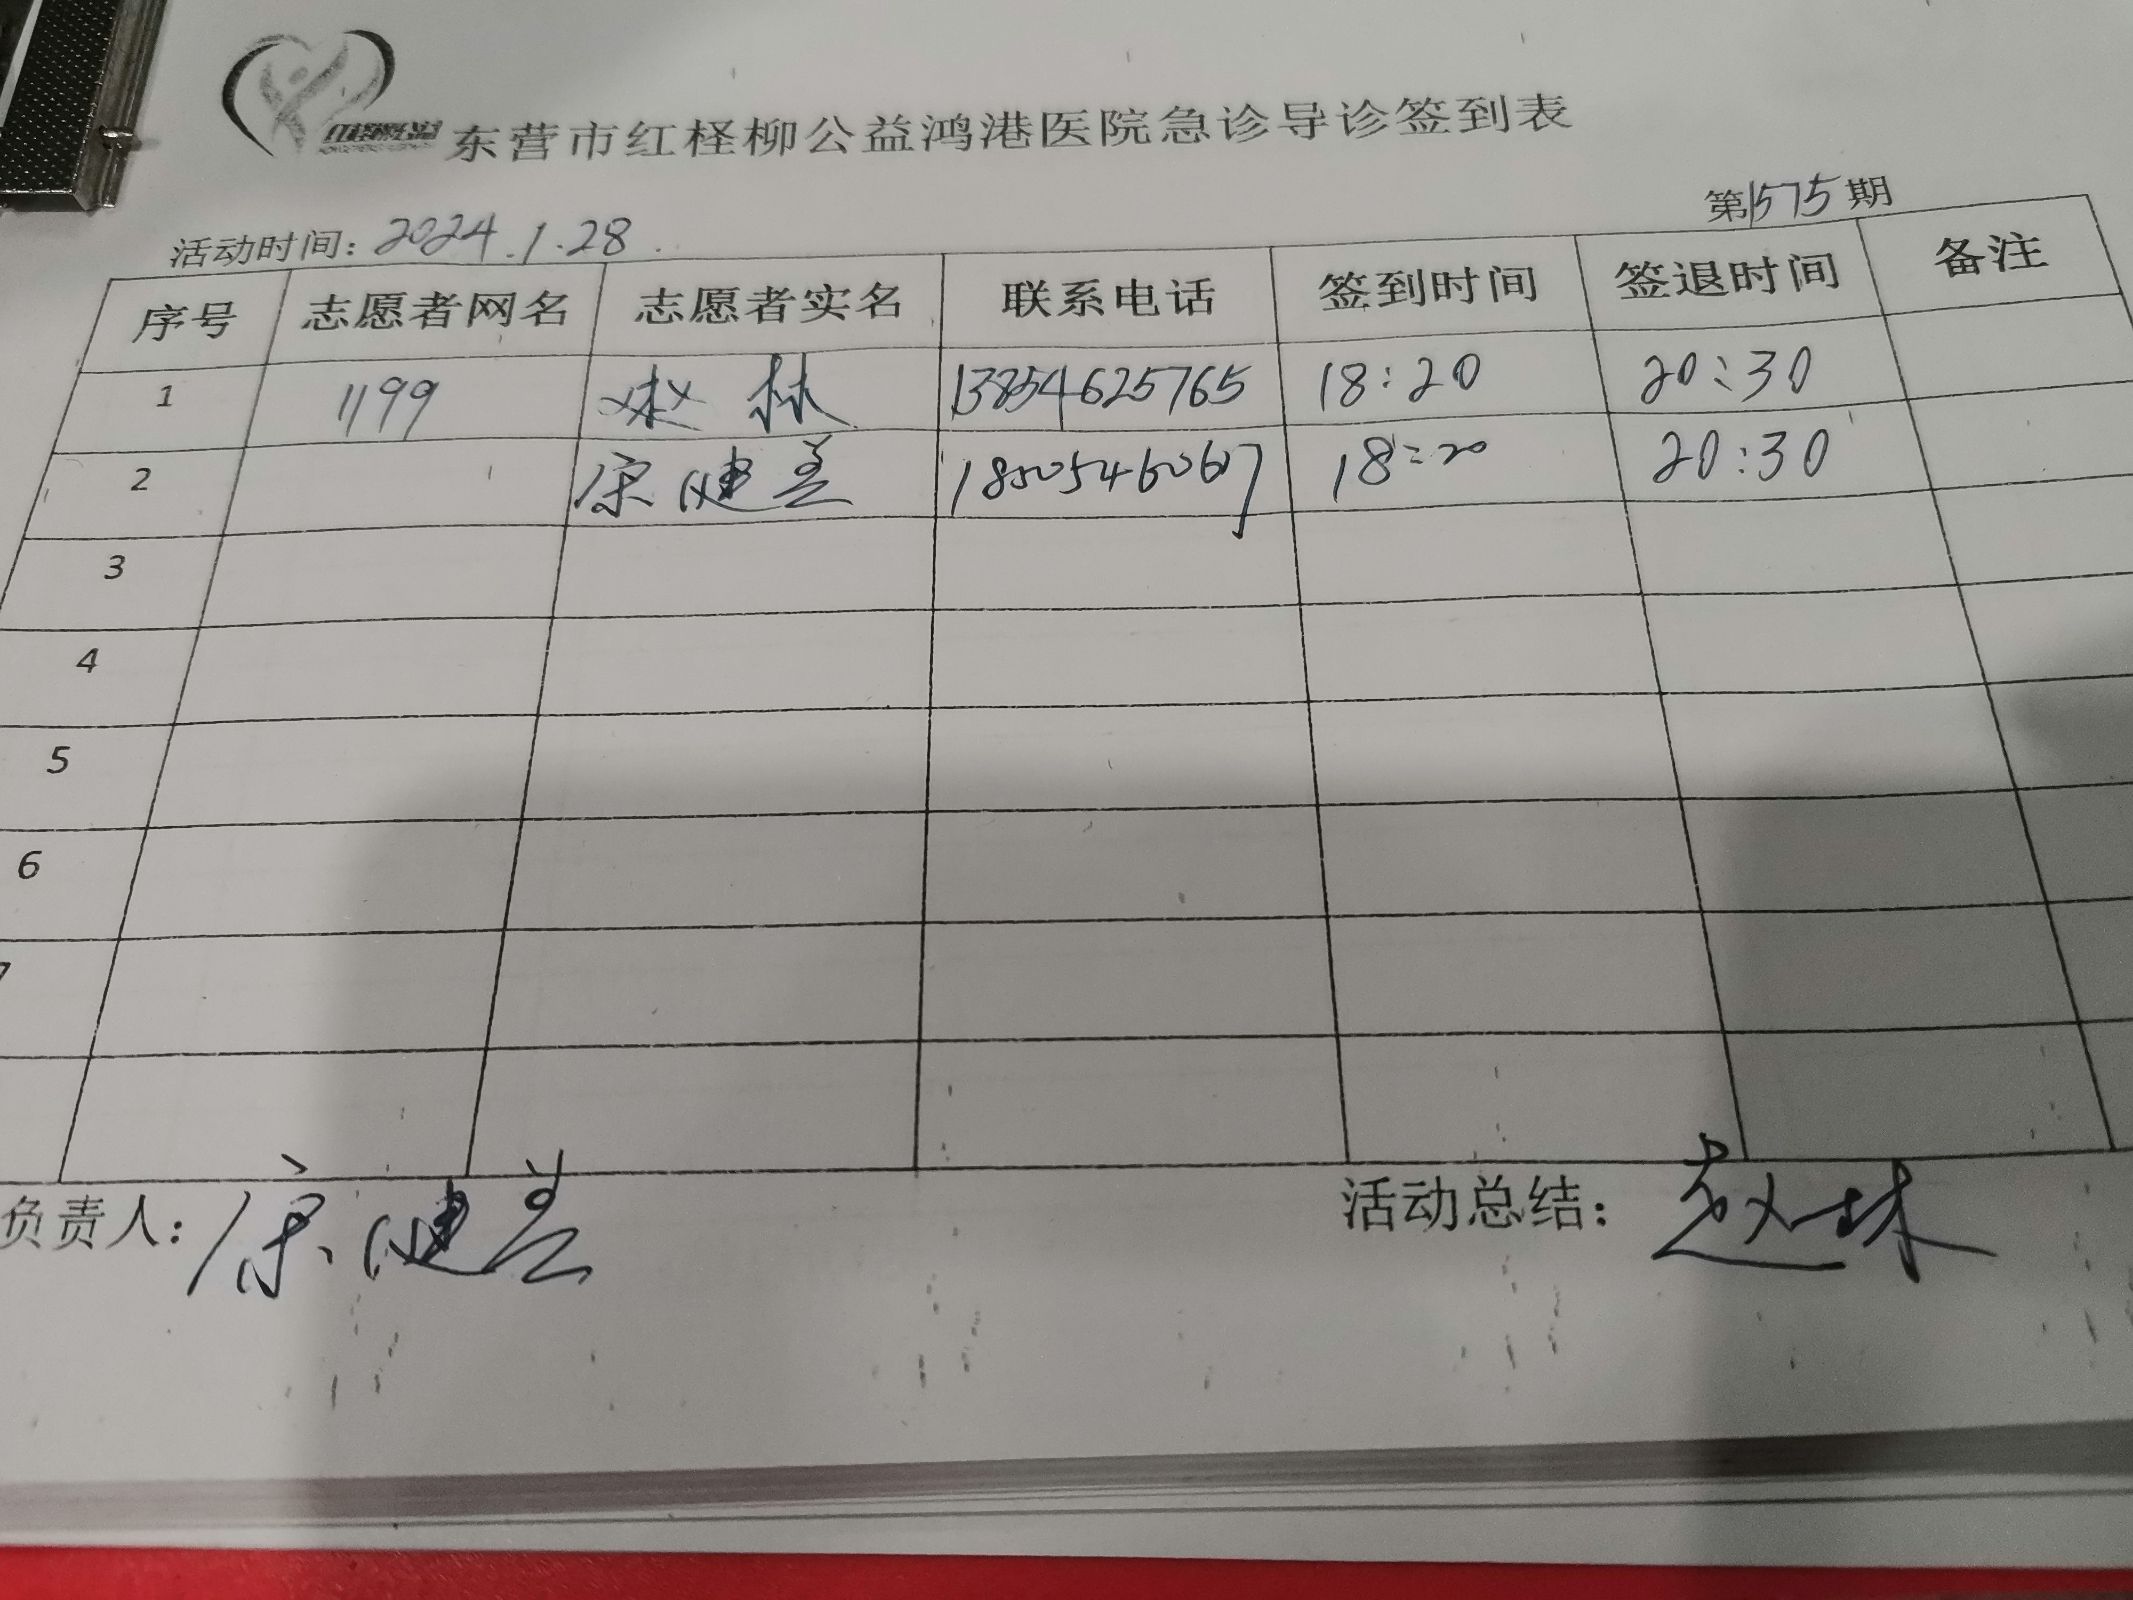 东营市红柽柳公益鸿港医院急诊导诊签到表
第1575期
活动时间：2024.1.28.
序号 志愿者网名 志愿者实名 联系电话 签到时间 签退时间 备注
1 1199 赵林 13854625765 18:20 20:30
2 康健美 18:20 20:30
3
4
5
6
7
负责人：康健美 活动总结：赵林